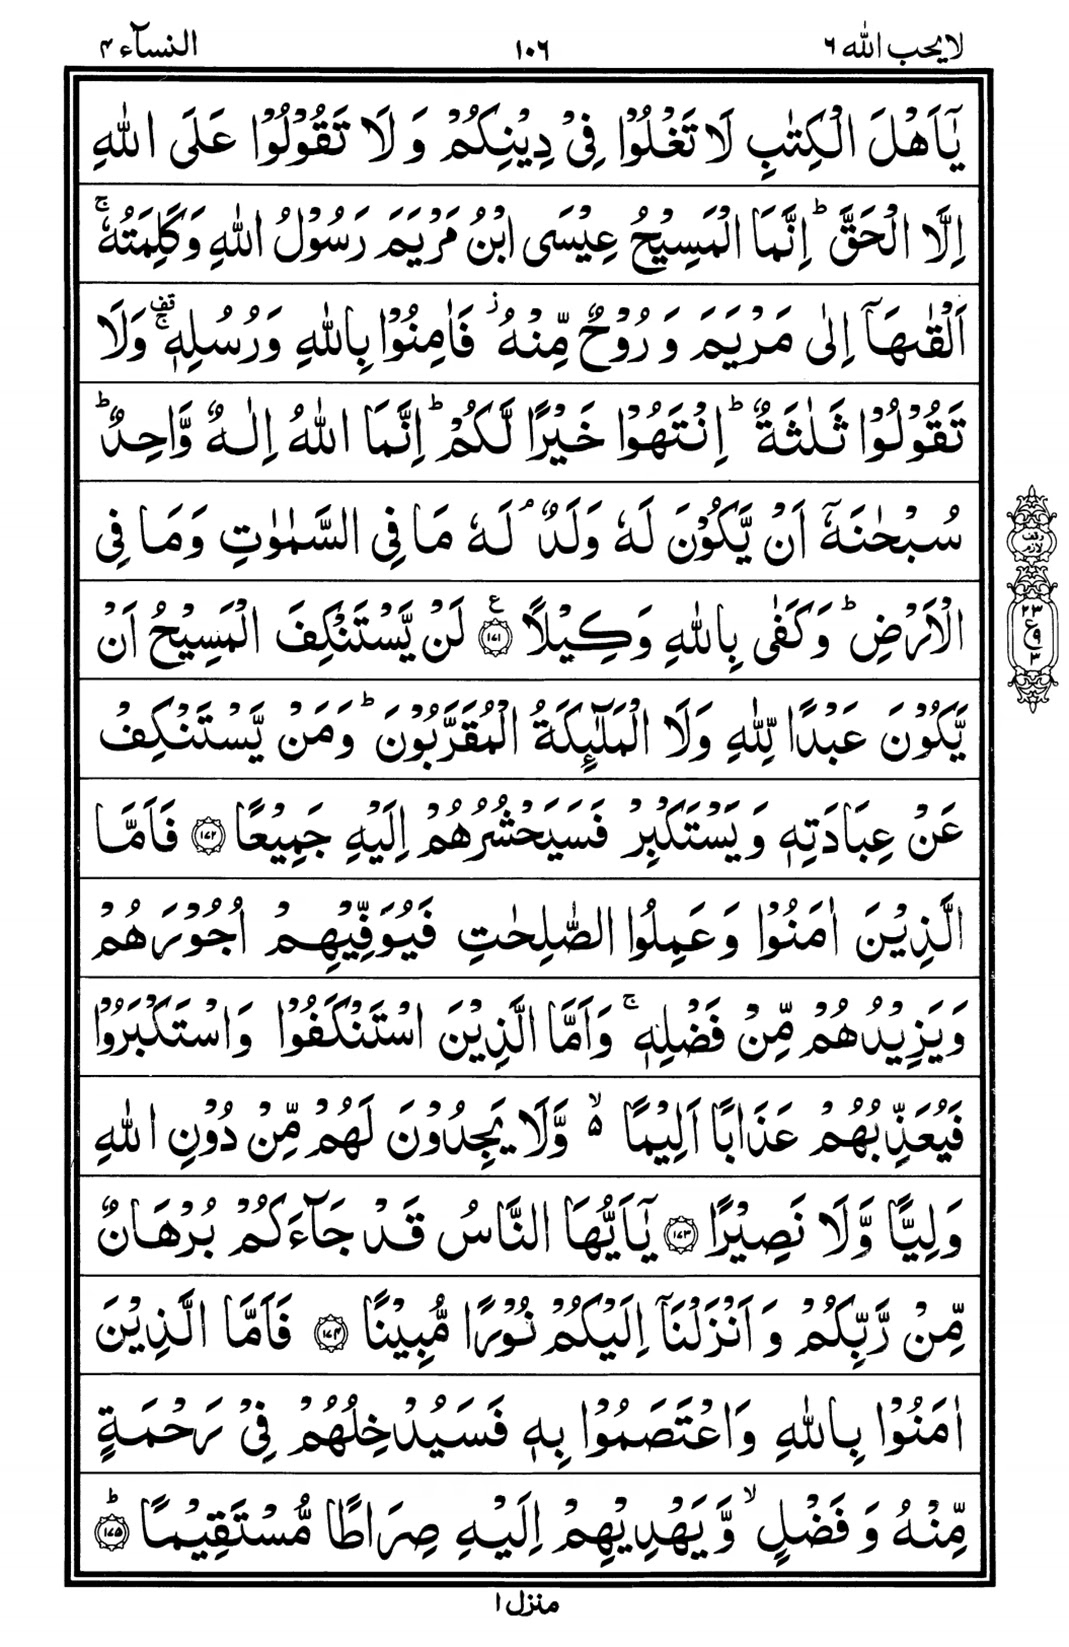 لا يحب الله ٦
١٠٦
النسآء ٤
يٰۤاَهْلَ الْكِتٰبِ لَا تَغْلُوْا فِیْ دِیْنِكُمْ وَ لَا تَقُوْلُوْا عَلَی اللّٰهِ
اِلَّا الْحَقَّ ؕ اِنَّمَا الْمَسِیْحُ عِیْسَی ابْنُ مَرْیَمَ رَسُوْلُ اللّٰهِ وَكَلِمَتُهٗ ۚ
اَلْقٰىهَاۤ اِلٰی مَرْیَمَ وَ رُوْحٌ مِّنْهُ ؗ فَاٰمِنُوْا بِاللّٰهِ وَرُسُلِهٖ ۚ۫ وَلَا
تَقُوْلُوْا ثَلٰثَةٌ ؕ اِنْتَهُوْا خَیْرًا لَّكُمْ ؕ اِنَّمَا اللّٰهُ اِلٰهٌ وَّاحِدٌ ؕ
سُبْحٰنَهٗۤ اَنْ یَّكُوْنَ لَهٗ وَلَدٌ ۘ لَهٗ مَا فِی السَّمٰوٰتِ وَمَا فِی
الْاَرْضِ ؕ وَكَفٰی بِاللّٰهِ وَكِیْلًا ۝۱۷۱ ع لَنْ یَّسْتَنْكِفَ الْمَسِیْحُ اَنْ
یَّكُوْنَ عَبْدًا لِّلّٰهِ وَلَا الْمَلٰٓىِٕكَةُ الْمُقَرَّبُوْنَ ؕ وَمَنْ یَّسْتَنْكِفْ
عَنْ عِبَادَتِهٖ وَیَسْتَكْبِرْ فَسَیَحْشُرُهُمْ اِلَیْهِ جَمِیْعًا ۝۱۷۲ فَاَمَّا
الَّذِیْنَ اٰمَنُوْا وَعَمِلُوا الصّٰلِحٰتِ فَیُوَفِّیْهِمْ اُجُوْرَهُمْ
وَیَزِیْدُهُمْ مِّنْ فَضْلِهٖ ۚ وَاَمَّا الَّذِیْنَ اسْتَنْكَفُوْا وَاسْتَكْبَرُوْا
فَیُعَذِّبُهُمْ عَذَابًا اَلِیْمًا ۙ۵ وَّلَا یَجِدُوْنَ لَهُمْ مِّنْ دُوْنِ اللّٰهِ
وَلِیًّا وَّلَا نَصِیْرًا ۝۱۷۳ یٰۤاَیُّهَا النَّاسُ قَدْ جَآءَكُمْ بُرْهَانٌ
مِّنْ رَّبِّكُمْ وَ اَنْزَلْنَاۤ اِلَیْكُمْ نُوْرًا مُّبِیْنًا ۝۱۷۴ فَاَمَّا الَّذِیْنَ
اٰمَنُوْا بِاللّٰهِ وَاعْتَصَمُوْا بِهٖ فَسَیُدْخِلُهُمْ فِیْ رَحْمَةٍ
مِّنْهُ وَ فَضْلٍ ۙ وَّیَهْدِیْهِمْ اِلَیْهِ صِرَاطًا مُّسْتَقِیْمًا ۝۱۷۵ؕ
وقف لازم
۲۳
ع ۹
۳
منزل ۱